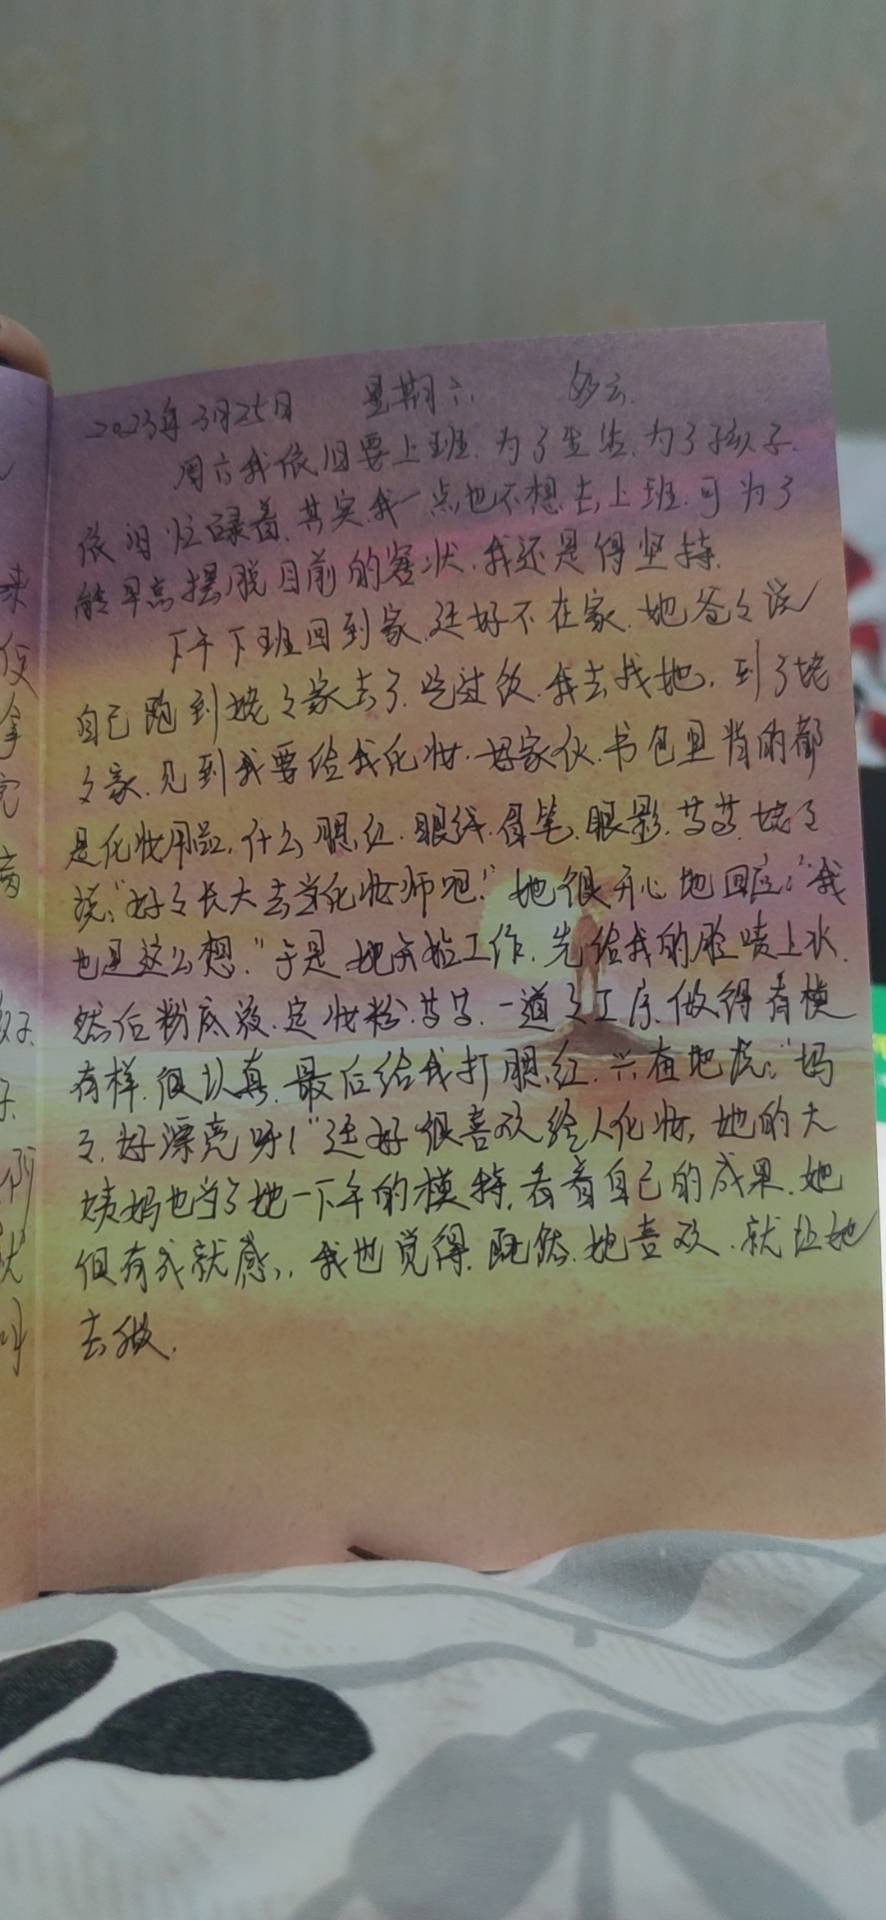 2023年3月25日 星期六 多云
周六我依旧要上班.为了生活.为了孩子.
依旧忙碌着.其实我一点也不想去上班.可为了
能早点摆脱目前的窘状.我还是得坚持.
下午下班回到家.廷好不在家.她爸々说
自己跑到姥々家去了.吃过饭.我去找她.到了姥
々家.见到我要给我化妆.好家伙.书包里背的都
是化妆用品.什么腮红.眼线.眉笔.眼影.等等.姥々
说:"好々长大去当化妆师吧!"她很开心地回应:"我
也是这么想."于是她开始工作.先给我的脸喷上水.
然后粉底液.定妆粉.等等.一道々工序.做得有模
有样.很认真.最后给我打腮红.兴奋地说:"妈
々.好漂亮呀!"廷好很喜欢给人化妆,她的大
姨妈也当了她一下午的模特,看着自己的成果.她
很有成就感.,我也觉得.既然.她喜欢.就让她
去做.
来
便
拿
完
子.